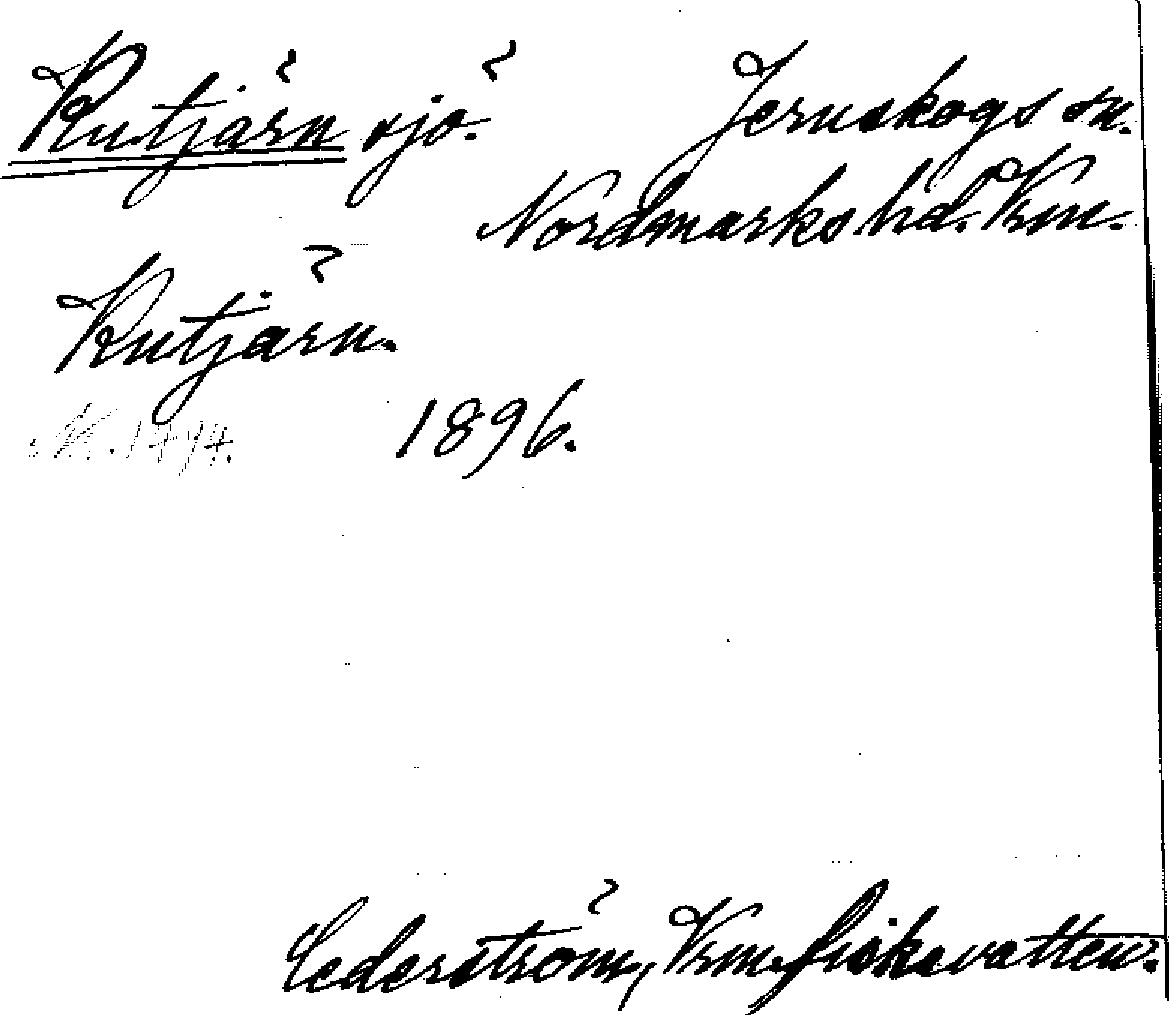 Kutjärn sjö. Jernskogs sn.
Nordmarks hd. Vrm.
Kutjärn.
1896.
Cederström, Vrm. fiskevatten.